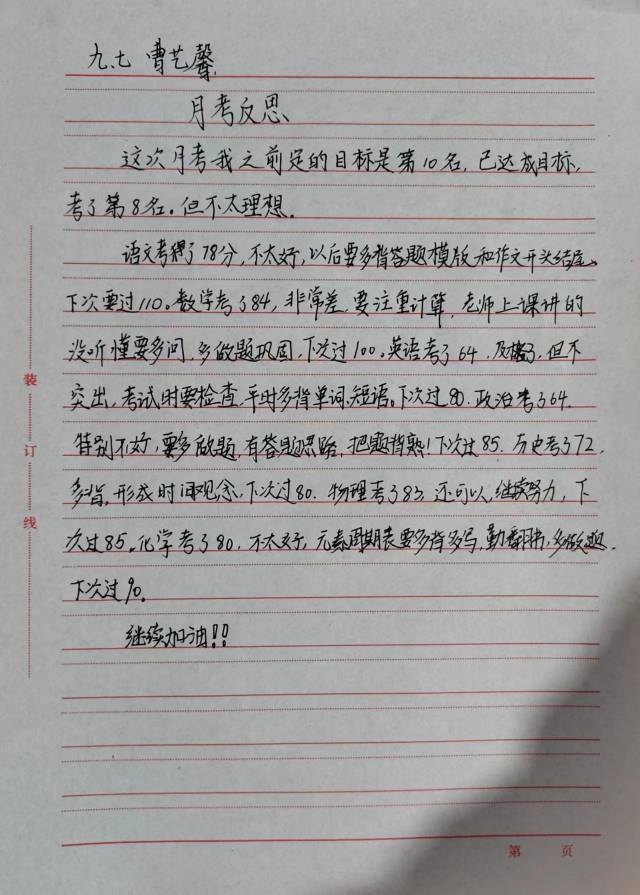 九.七 曹艺馨
月考反思
这次月考我之前定的目标是第10名,已达成目标,
考了第8名。但不太理想.
语文考得了78分,不太好,以后要多背答题模版和作文开头结尾、
下次要过110。数学考了84,非常差,要注重计算,老师上课讲的
没听懂要多问,多做题巩固,下次过100。英语考了64,及格了,但不
突出,考试时要检查,平时多背单词、短语。下次过80.政治考了64.
特别不好,要多做题,有答题思路,把题背熟!下次过85.历史考了72,
多背,形成时间观念,下次过80.物理考了83,还可以,继续努力,下
次过85。化学考了80,不太好,元素周期表要多背多写,勤翻书,多做题.
下次过90。
继续加油!!
装
订
线
第 页